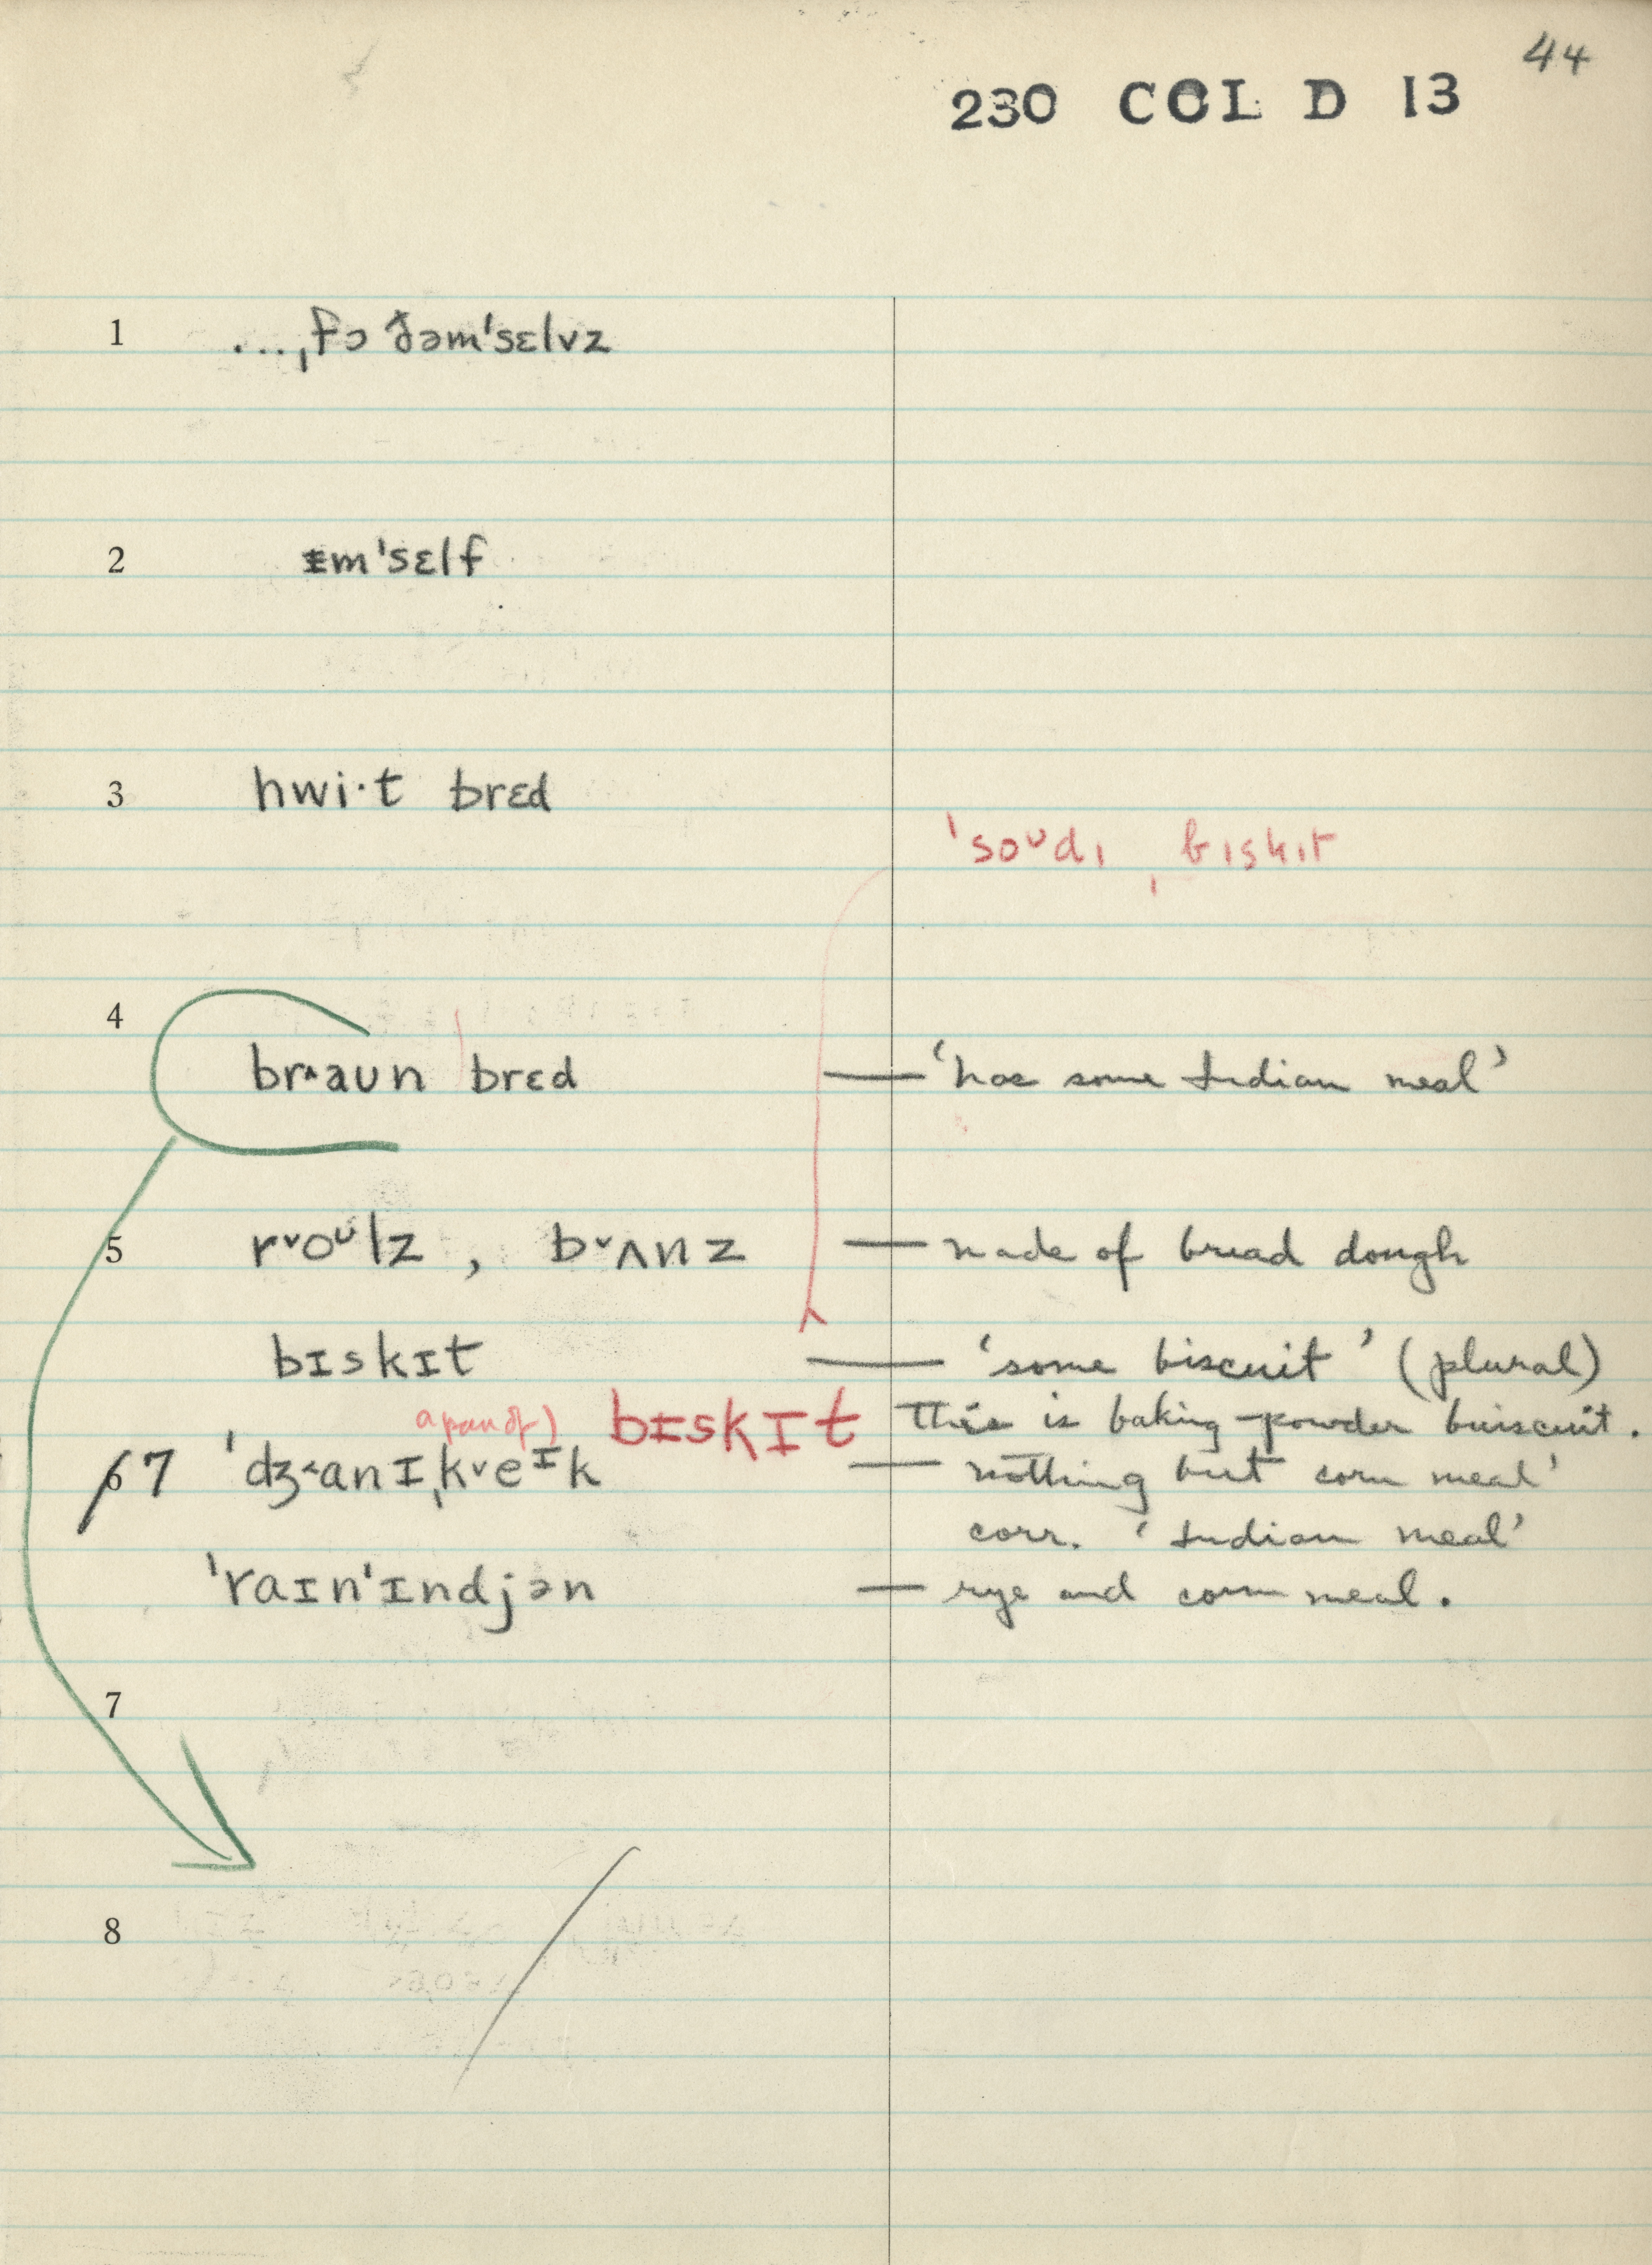 44
230 COL D 13
1 ...ˌfɔ ðəmˈsɛlvz
2 ɪ̵mˈsɛlf
3 hwi·t brɛd
ˈsoᴜdɪ ˌbɪskɪt
4
br˄aᴜn brɛd — ‘has some Indian meal’
5 r˅oᴜlz , b˅ʌnz — made of bread dough
bɪskɪt — ‘some biscuit’ (plural)
a pan of) bɪ̵skɪt This is baking-powder buiscuit.
6 7 ˈdʒ˂anɪˌk˅eɪk — nothing but corn meal’
corr. ‘Indian meal’
ˈraɪnˈɪndjən — rye and corn meal.
7
8